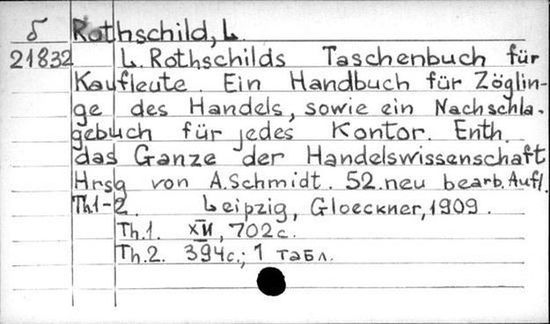 δ Rothschild, L.
21832 L. Rothschilds Taschenbuch für
Kaufleute. Ein Handbuch für Zöglin-
ge des Handels, sowie ein Nachschla-
gebuch für jedes Kontor. Enth.
das Ganze der Handelswissenschaft
Hrsg von A. Schmidt. 52. neu bearb. Aufl.
Th.1-2. Leipzig, Gloeckner, 1909.
Th.1. XII, 702 с.
Th.2. 394 с.; 1 табл.